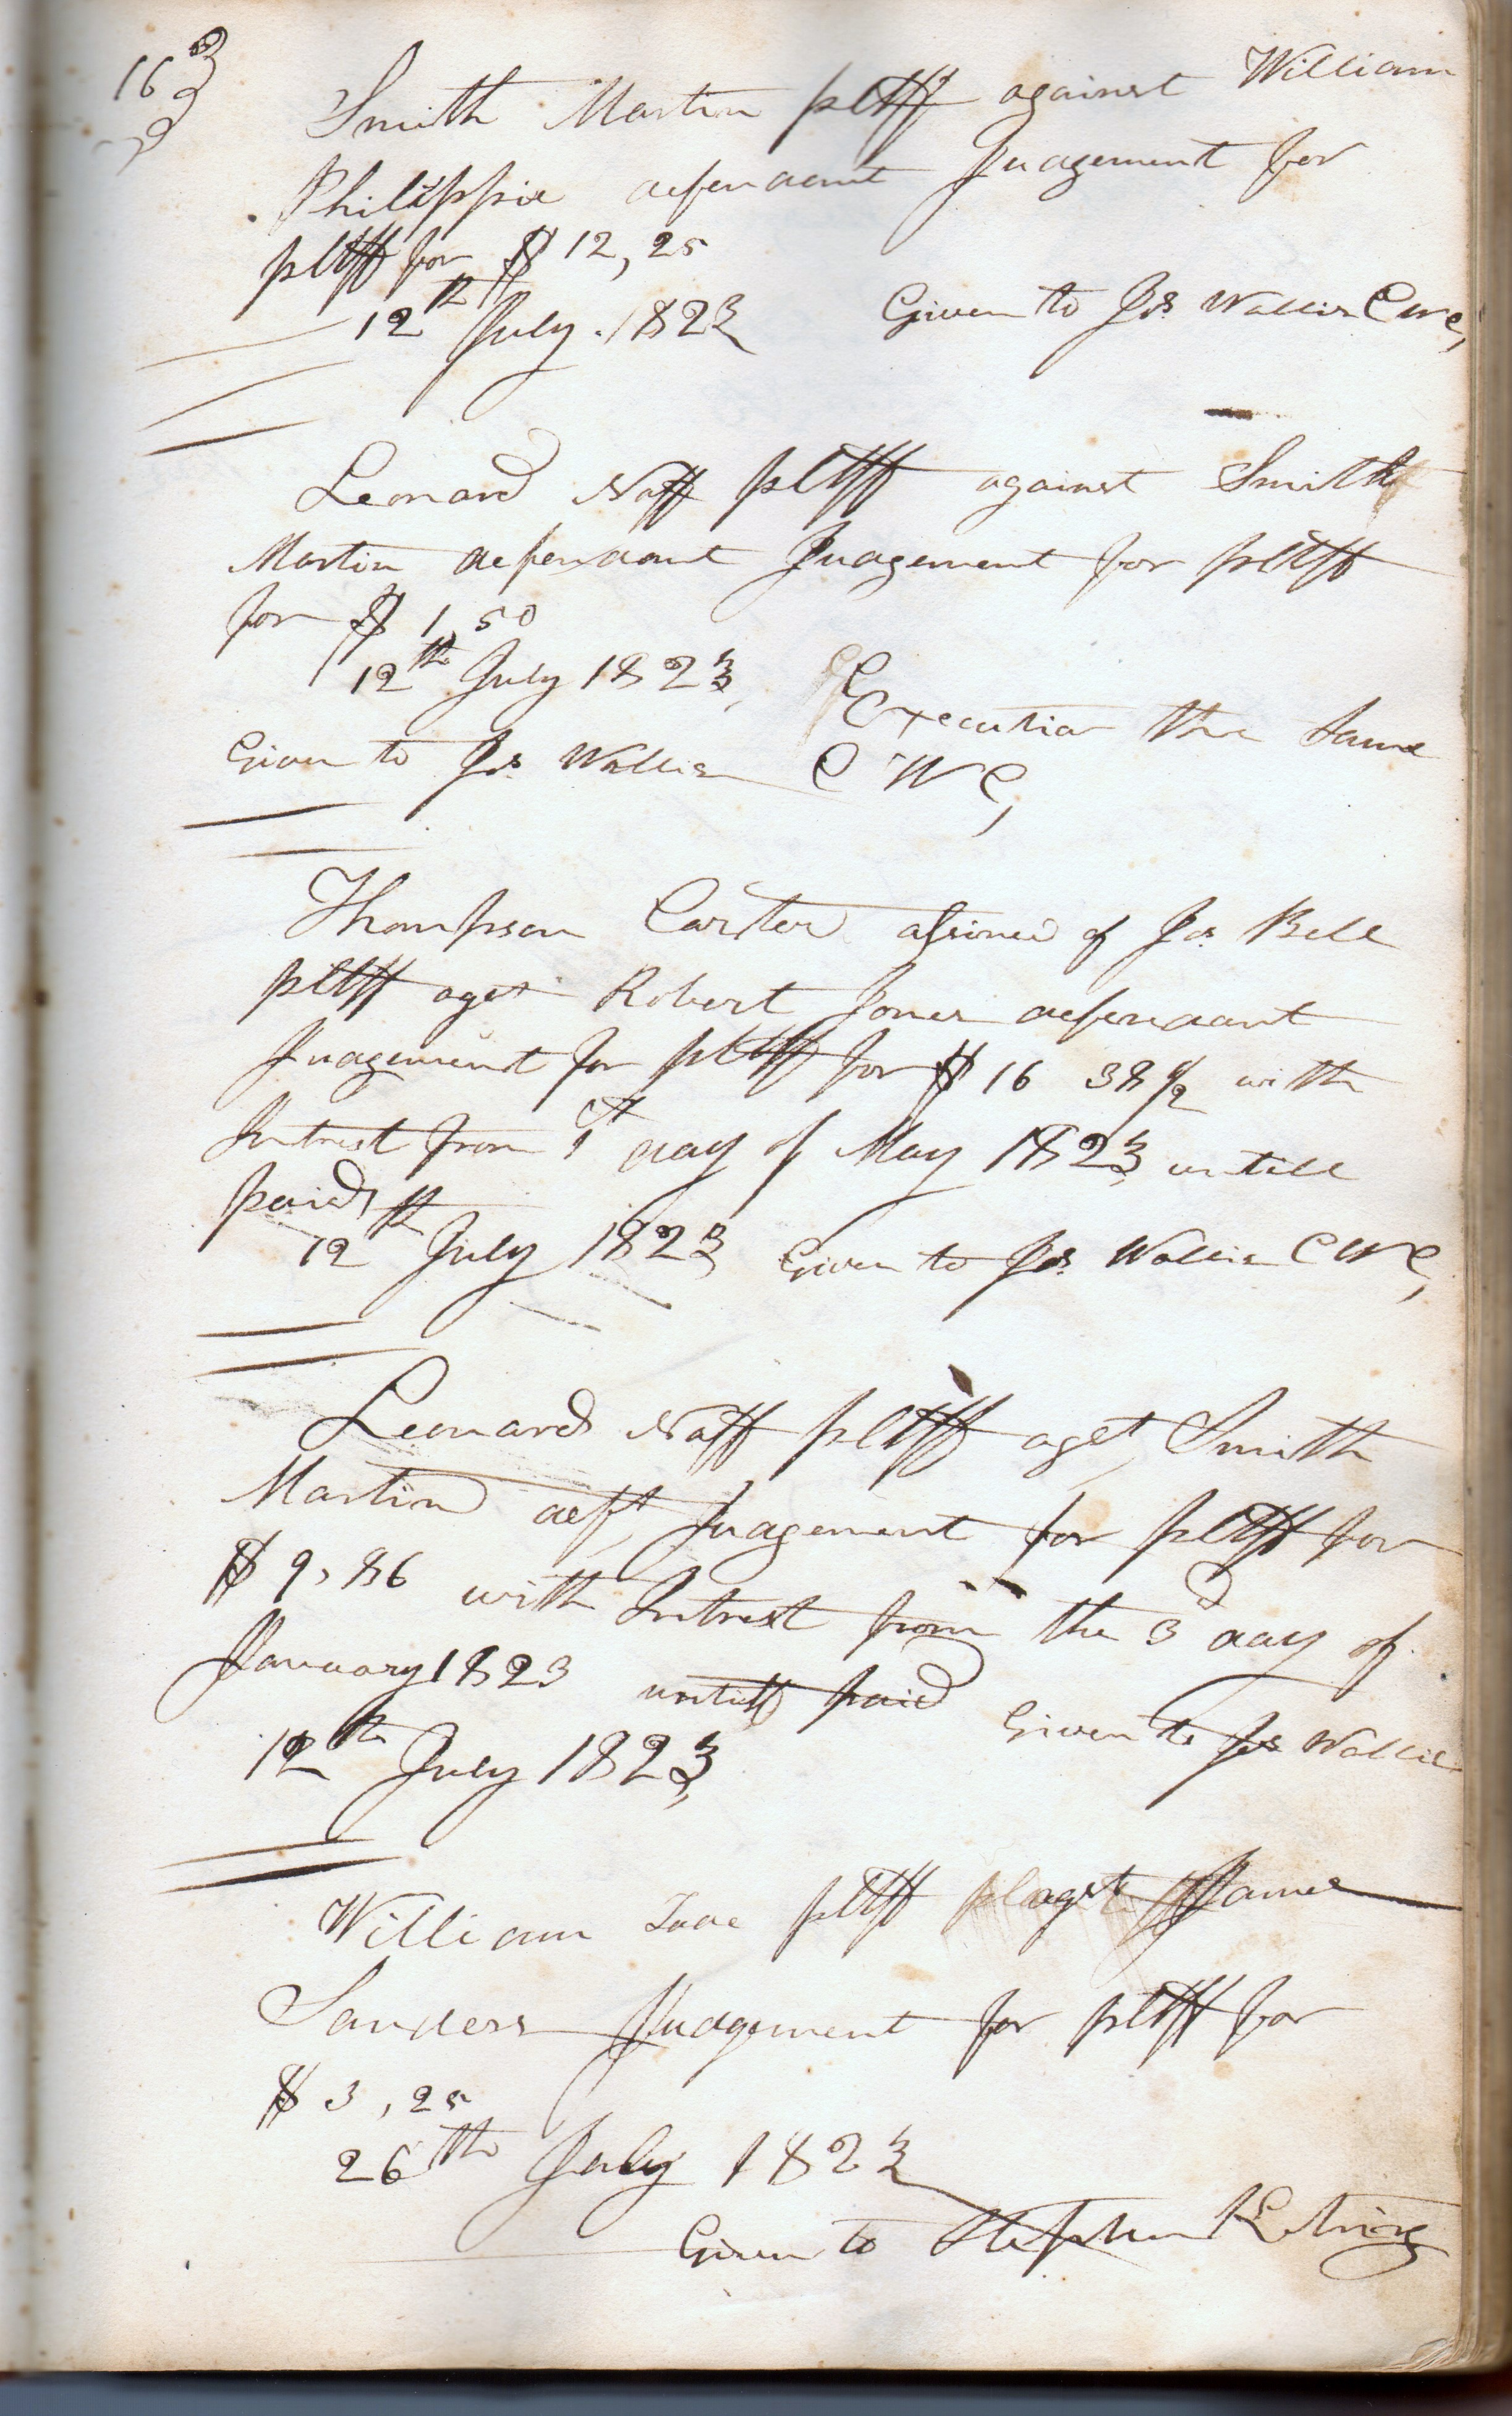 163
Smith Martin pltff against William
Philippie defendant Judgement for
pltff for $12,25
12th July 1823 Given to Jos Wallis CWC,
Leonard Naff pltff against Smith
Martin defendant Judgement for pltff
for $1,50
12th July 1823, Execution the Same
Given to Jos Wallis CWC,
Thompson Carter of Jos Bell
pltff agst Robert Jones defendant
Judgement for pltff for $16 38 1/2 with
Intrest from 1st day of May 1823 untill
paid
12th July 1823 Given to Jos Wallis CWC,
Leonard Naff pltff agst Smith
Martin deft Judgement for pltff for
$9,86 with Intrest from the 3d day of
January 1823 untill paid
12th July 1823, Given to Jos Wallis
William pltff agst James
Sanders Judgement for pltff for
$3,25
26th July 1823
Given to Stephen